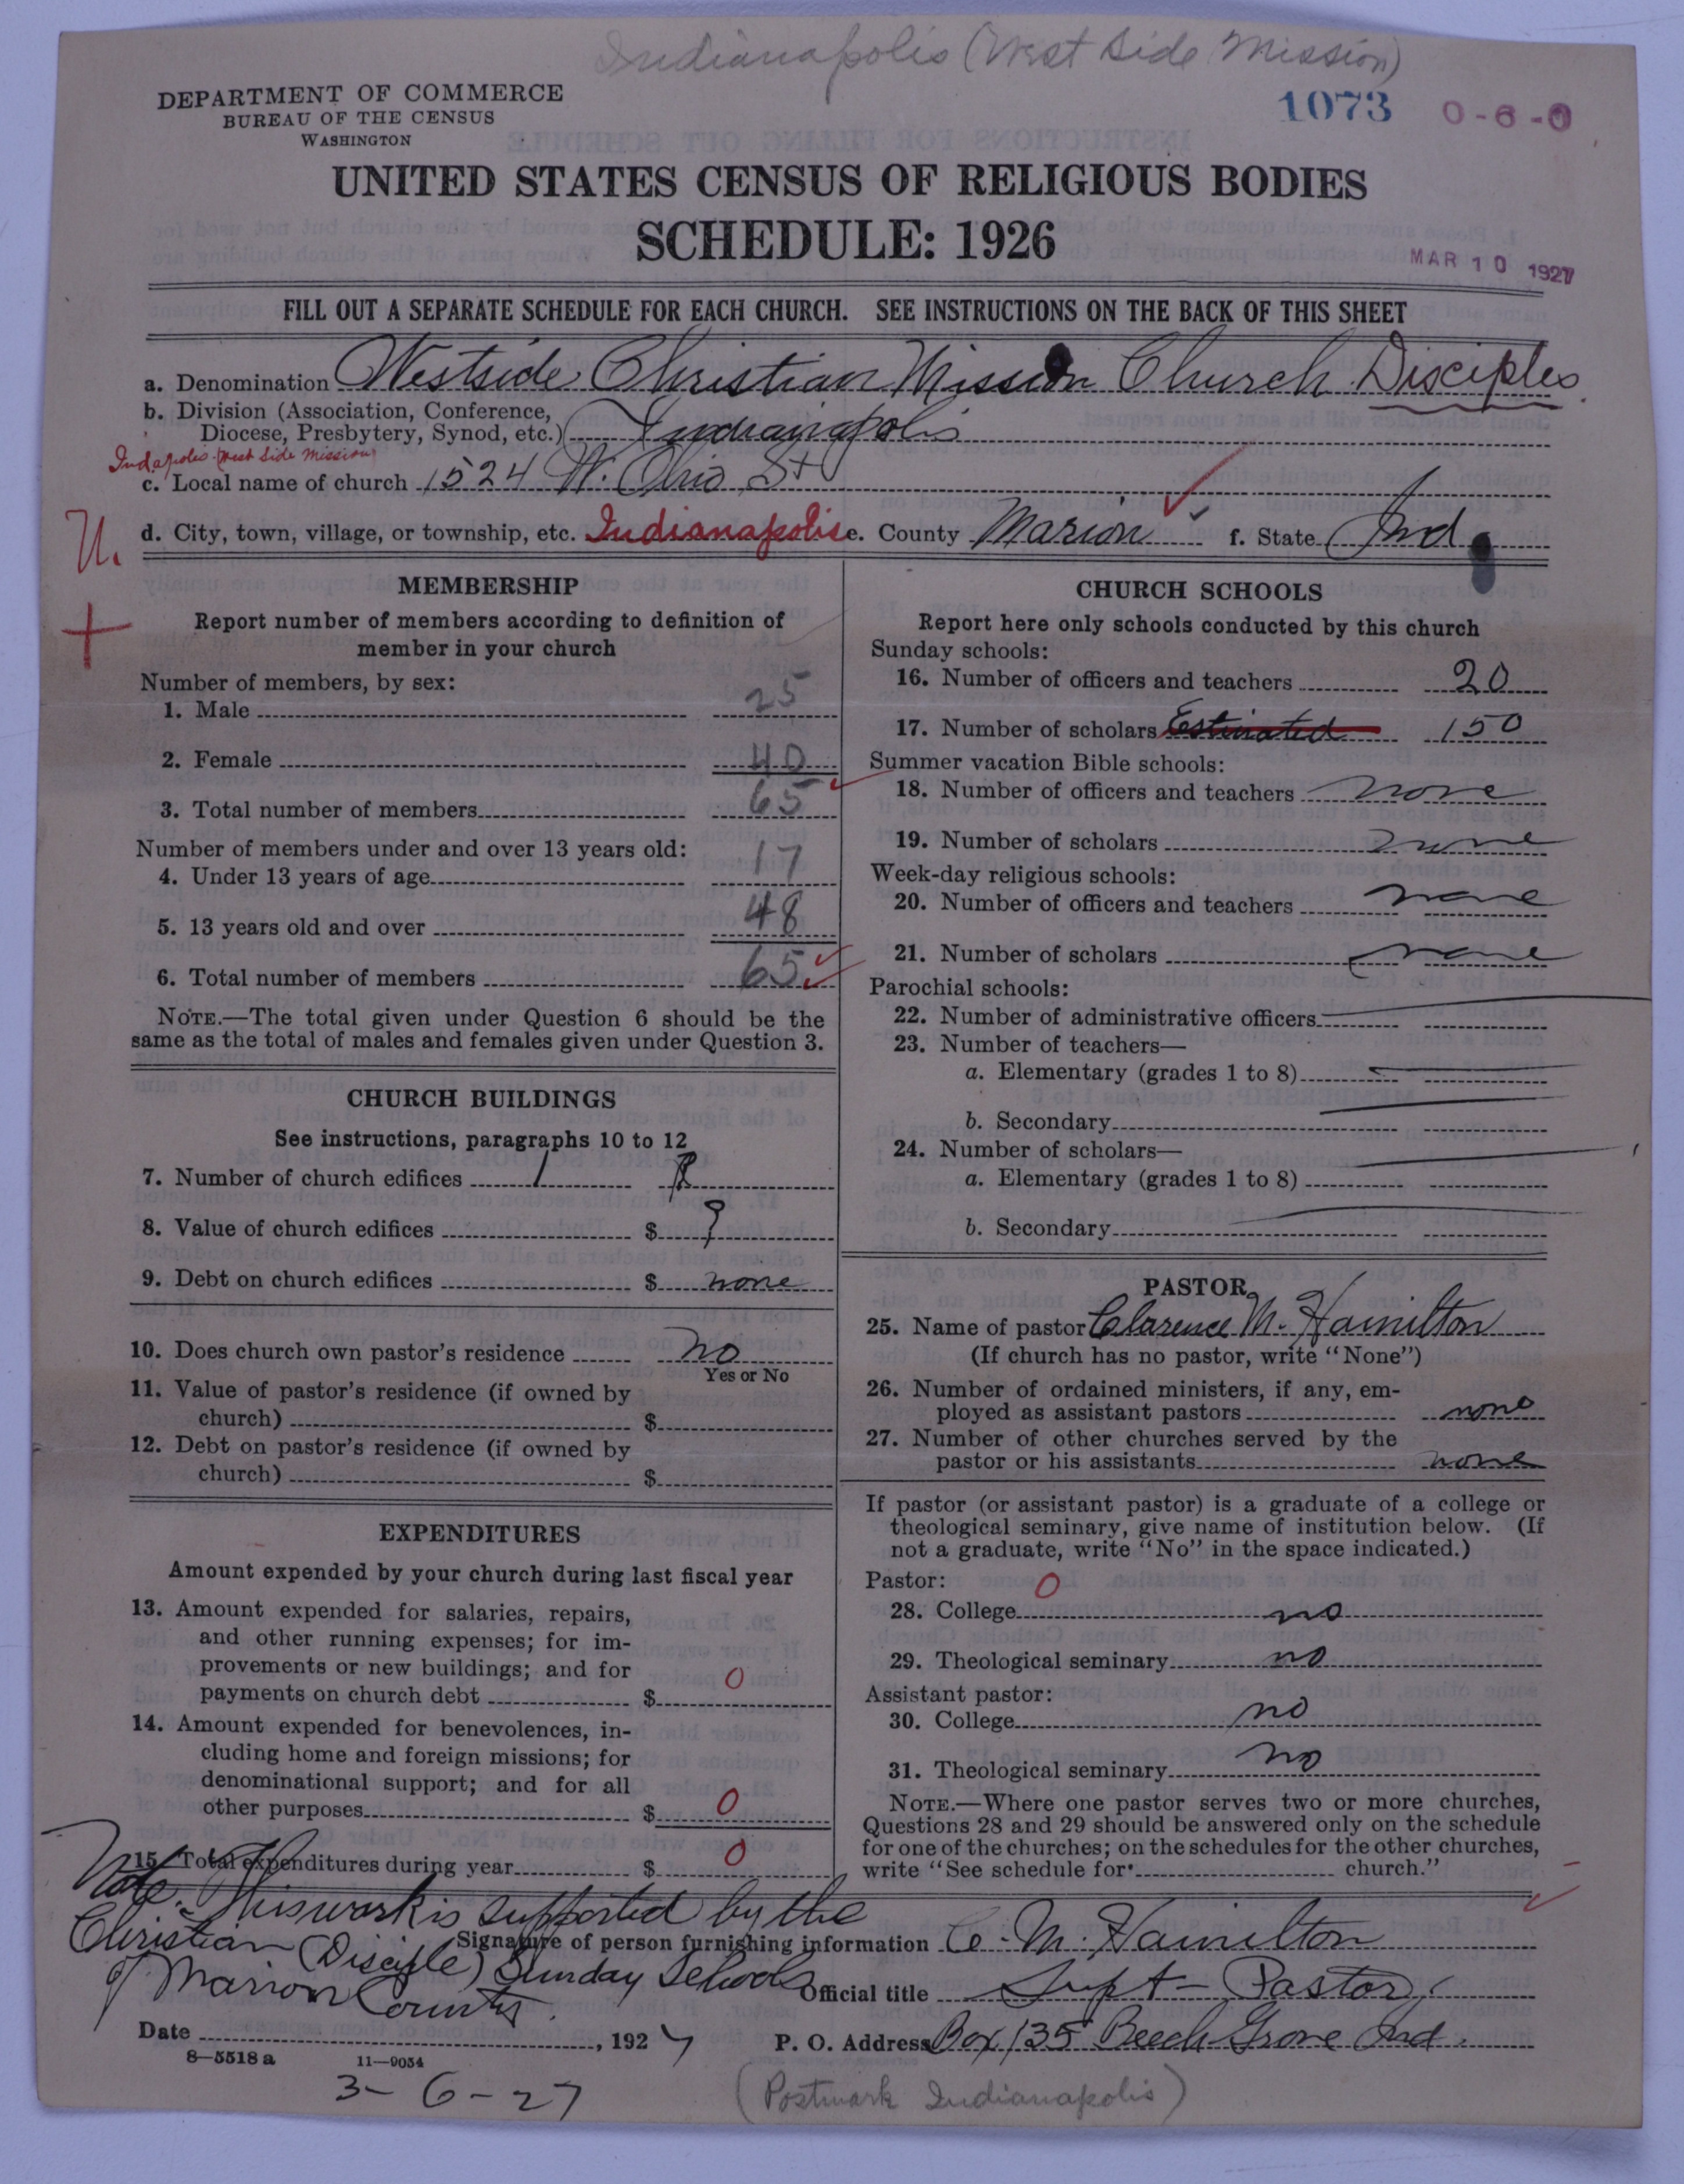 Indianapolis (West Side Mission)
DEPARTMENT OF COMMERCE
BUREAU OF THE CENSUS
WASHINGTON
1073 0-6-0
UNITED STATES CENSUS OF RELIGIOUS BODIES
SCHEDULE: 1926
MAR 10 1927
FILL OUT A SEPARATE SCHEDULE FOR EACH CHURCH. SEE INSTRUCTIONS ON THE BACK OF THIS SHEET
a. Denomination Westside Christian Mission Church Disciples
b. Division (Association, Conference,
Diocese, Presbytery, Synod, etc.) Indianapolis
Indapolis (West Side Mission)
c. Local name of church 1524 W. Ohio St
d. City, town, village, or township, etc. Indianapolis e. County Marion f. State Ind
U.
+
MEMBERSHIP
Report number of members according to definition of
member in your church
Number of members, by sex:
1. Male 25
2. Female 40
3. Total number of members 65
Number of members under and over 13 years old:
4. Under 13 years of age 17
5. 13 years old and over 48
6. Total number of members 65
NOTE.—The total given under Question 6 should be the
same as the total of males and females given under Question 3.
CHURCH BUILDINGS
See instructions, paragraphs 10 to 12
7. Number of church edifices 1
8. Value of church edifices $ ?
9. Debt on church edifices $ none
10. Does church own pastor's residence no
Yes or No
11. Value of pastor's residence (if owned by
church) $
12. Debt on pastor's residence (if owned by
church) $
EXPENDITURES
Amount expended by your church during last fiscal year
13. Amount expended for salaries, repairs,
and other running expenses; for im-
provements or new buildings; and for
payments on church debt $ 0
14. Amount expended for benevolences, in-
cluding home and foreign missions; for
denominational support; and for all
other purposes $ 0
15. Total expenditures during year $ 0
CHURCH SCHOOLS
Report here only schools conducted by this church
Sunday schools:
16. Number of officers and teachers 20
17. Number of scholars Estimated 150
Summer vacation Bible schools:
18. Number of officers and teachers none
19. Number of scholars none
Week-day religious schools:
20. Number of officers and teachers none
21. Number of scholars none
Parochial schools:
22. Number of administrative officers
23. Number of teachers—
a. Elementary (grades 1 to 8)
b. Secondary
24. Number of scholars—
a. Elementary (grades 1 to 8)
b. Secondary
PASTOR
25. Name of pastor Clarence M. Hamilton
(If church has no pastor, write "None")
26. Number of ordained ministers, if any, em-
ployed as assistant pastors none
27. Number of other churches served by the
pastor or his assistants none
If pastor (or assistant pastor) is a graduate of a college or
theological seminary, give name of institution below. (If
not a graduate, write "No" in the space indicated.)
Pastor: 0
28. College no
29. Theological seminary no
Assistant pastor:
30. College no
31. Theological seminary no
NOTE.—Where one pastor serves two or more churches,
Questions 28 and 29 should be answered only on the schedule
for one of the churches; on the schedules for the other churches,
write "See schedule for church."
Note. This work is supported by the
Christian (Disciple) Sunday Schools
of Marion County.
Signature of person furnishing information C. M. Hamilton
Official title Supt - Pastor
Date , 1927 P. O. Address Box 135 Beech Grove Ind.
8—5518 a 11—9054
3-6-27
(Postmark Indianapolis)